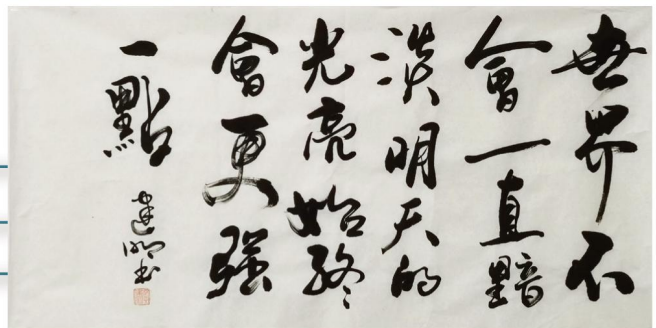 世界不
會一直黯
淡明天的
光亮始終
會更强
一點
建明书